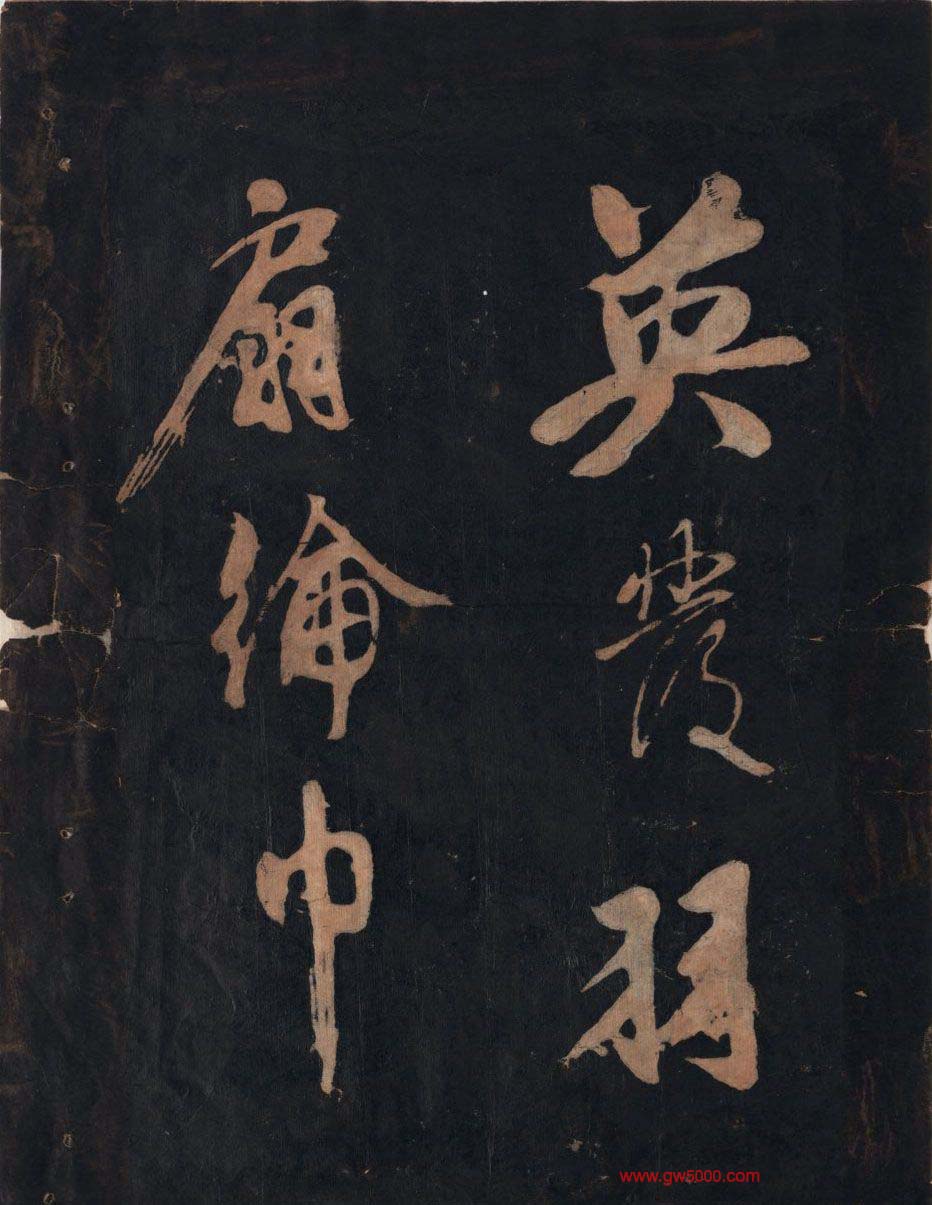 英發羽
扇綸巾
www.gw5000.com